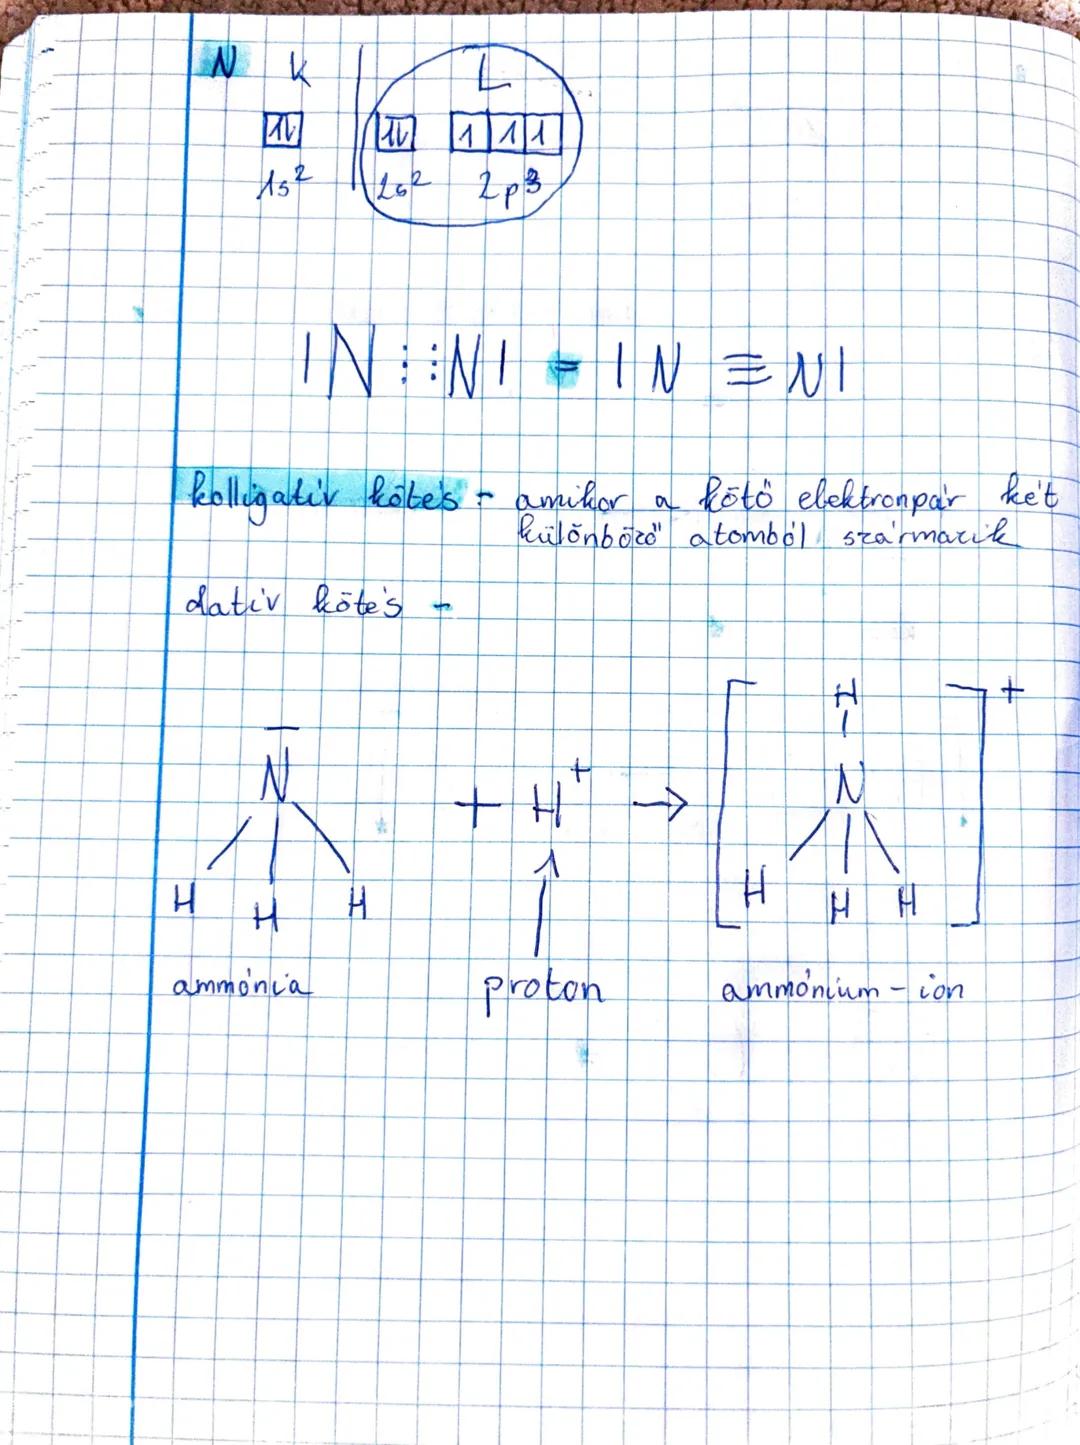 N K L
1s² 2s² 2p³
|N⋮⋮⋮N| = |N≡N|
kolligatív kötés - amikor a kötő elektronpár két
különböző atomból származik
datív kötés -
H
N + H⁺ → [ N ]⁺
H H H H H H
ammónia proton ammónium-ion